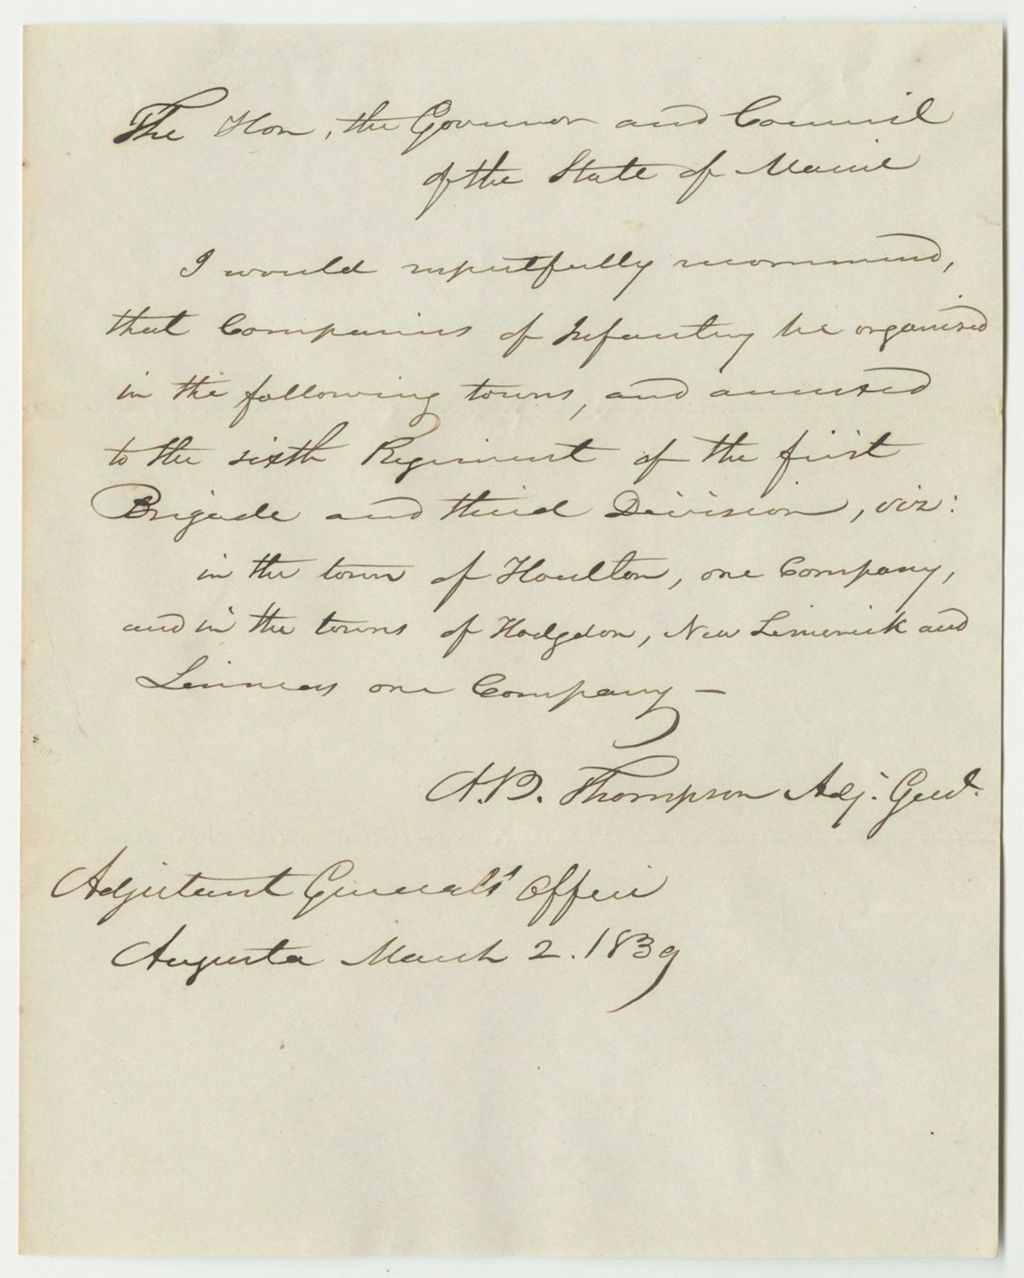 The Hon. the Governor and Council
of the State of Maine
I would respectfully recommend,
that Companies of Infantry be organised
in the following towns, and annexed
to the sixth Regiment of the first
Brigade and third Division, viz:
in the town of Houlton, one Company,
and in the towns of Hodgdon, New Limerick and
Linneas one Company —
A.B. Thompson Adj. Genl.
Adjutant General's Office
Augusta March 2. 1839